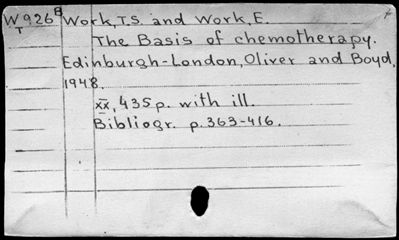 W926B Work, T.S. and Work, E.
T
The Basis of chemotherapy.
Edinburgh-London, Oliver and Boyd,
1948.
xx, 435 p. with ill.
Bibliogr. p. 363-416.